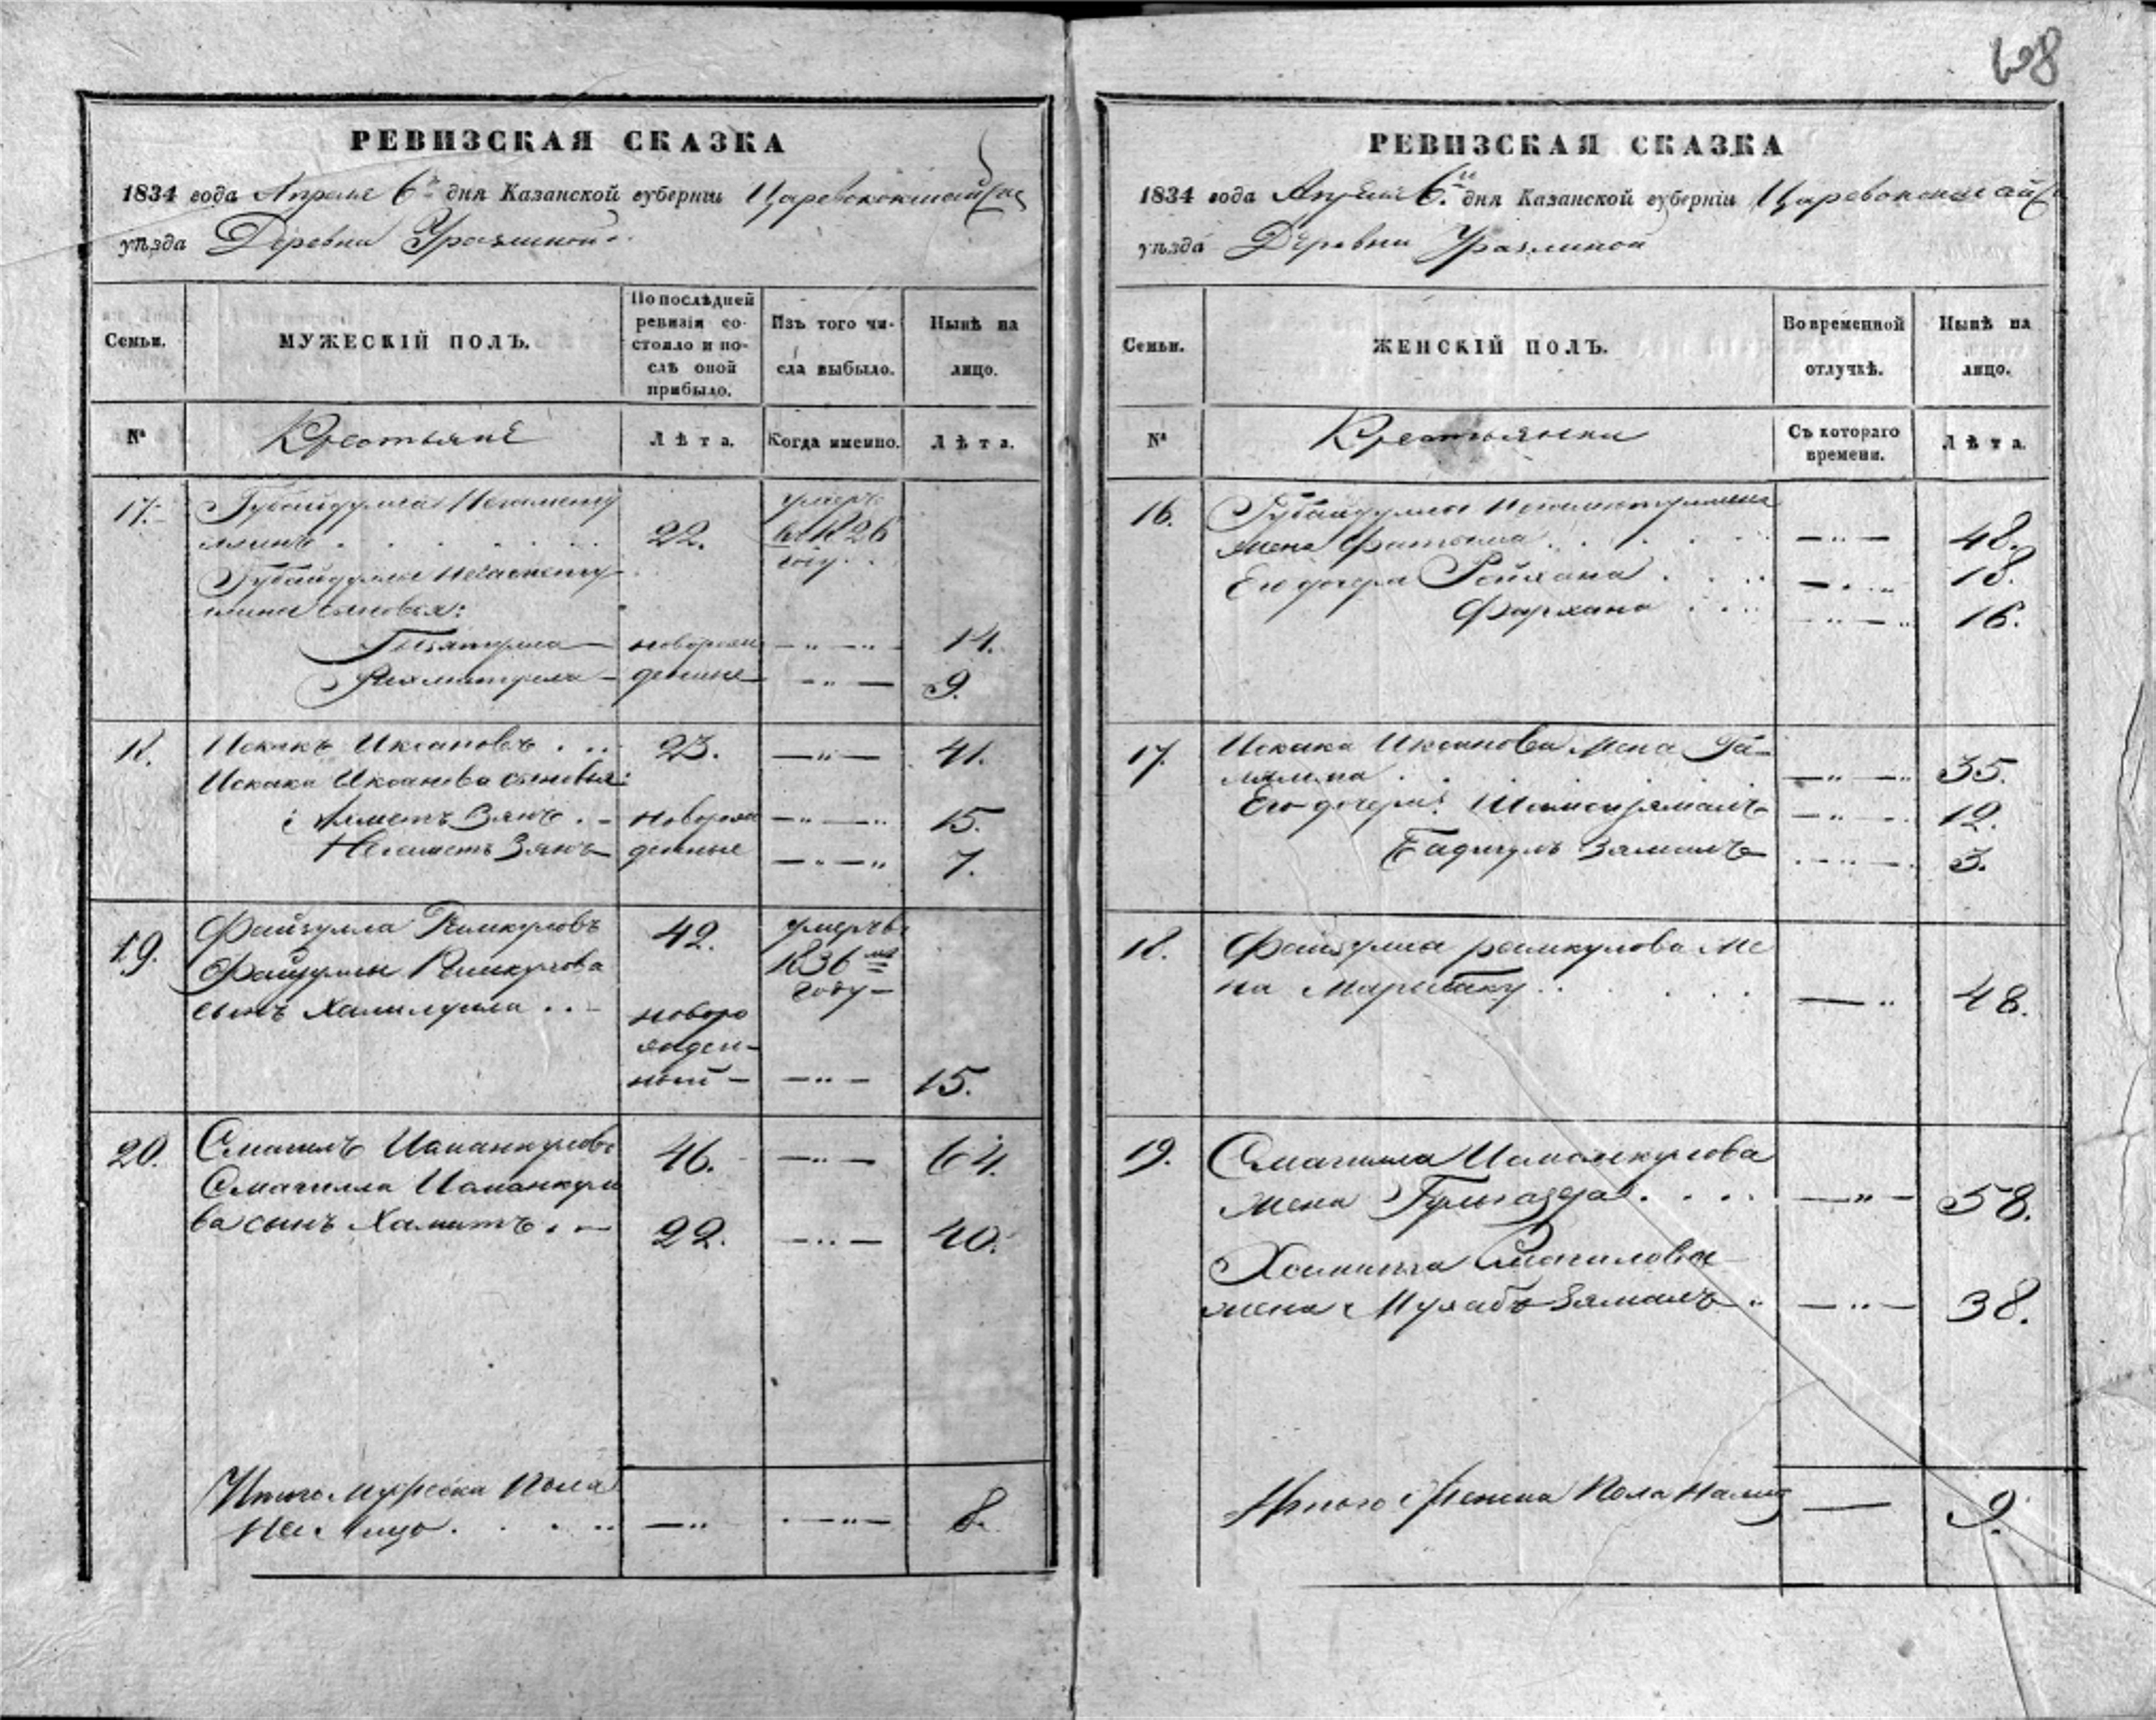 608
РЕВИЗСКАЯ СКАЗКА
1834 года Апреля 6го дня Казанской губерніи Царевококшайска
уѣзда Деревни Уразлиной
Семьи.
МУЖЕСКІЙ ПОЛЪ.
По послѣдней ревизіи со-
стояло и по-
слѣ оной
прибыло.
Изъ того чи-
сла выбыло.
Нынѣ на
лицо.
№
Крестьяне
Лѣта.
Когда именно.
Лѣта.
17.
Губайдулла
22.
умеръ
году
Губайдуллы
сыновья:
новорож
14.
Рахматулла
денные
9.
18.
Искакъ Иксановъ
23.
41.
Искака Иксанова сыновья:
Ахметъ Зянъ
новорож
15.
Негаметъ Зянъ
денные
7.
19.
Файзулла Рамкуловъ
42.
умеръ въ
Файзуллы Рамкулова
1836 мъ
году
сынъ Халиулла
новоро
жден-
ный
15.
20.
Смагилъ Иманкуловъ
46.
64.
Смагилла Иманкуло
ва сынъ Хамитъ
22.
40.
Итого мужеска пола
на лицо
8.
РЕВИЗСКАЯ СКАЗКА
1834 года Апреля 6го дня Казанской губерніи Царевококшайска
уѣзда Деревни Уразлиной
Семьи.
ЖЕНСКІЙ ПОЛЪ.
Во временной
отлучкѣ.
Нынѣ на
лицо.
№
Крестьянки
Съ котораго
времени.
Лѣта.
16.
Губайдуллы
жена Фатыма
48.
Его дочери Райхана
18.
Фархана
16.
17.
Искака Иксанова жена Га-
35.
Его дочери: Шамсиямалъ
12.
Бадигулъ Зямалъ
3.
18.
Файзуллы рамкулова же
на
48.
19.
Смагилла Иманкулова
жена
58.
Хамита Смагилова
жена Зямалъ
38.
Итого женска пола на лицо
9.